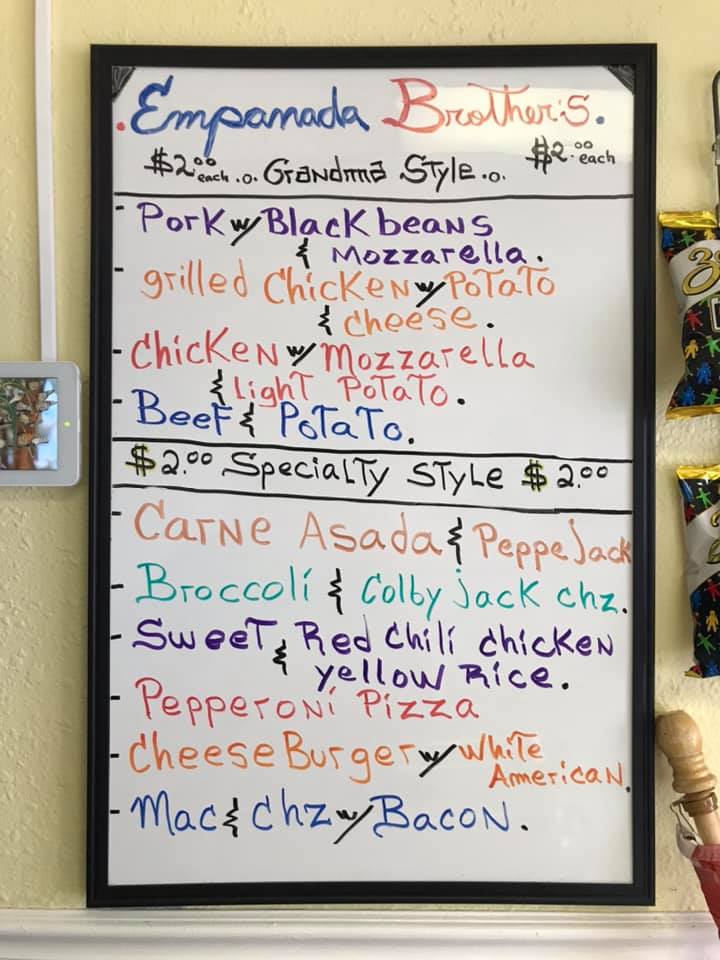 .Empanada Brother's.
$2.00 each .o. Grandma Style .o. $2.00 each
- Pork w/ Black beans
& Mozzarella.
- grilled Chicken w/ Potato
& cheese.
- Chicken w/ Mozzarella
& Light Potato.
- Beef & Potato.
$2.00 Specialty Style $2.00
- Carne Asada & Peppe Jack
- Broccoli & Colby jack chz.
- Sweet, Red Chili chicken
& yellow Rice.
- Pepperoni Pizza
- Cheese Burger w/ White
American.
- Mac & Chz w/ Bacon.